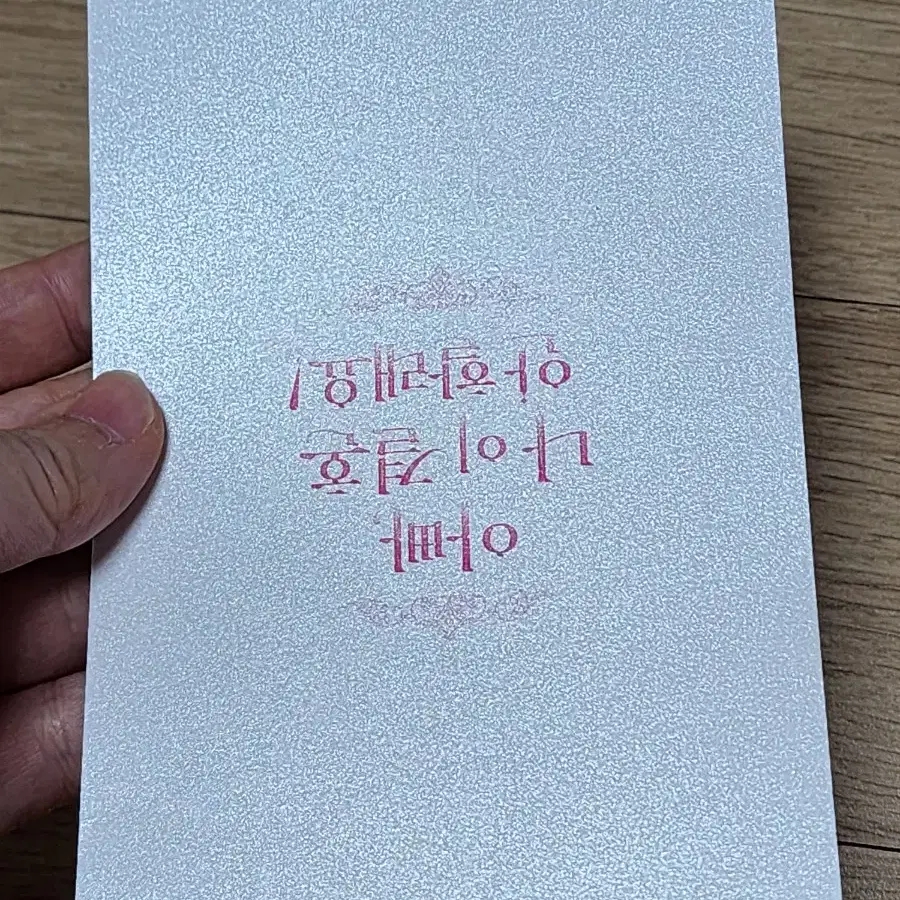 아빠
나 이 결혼
안 할래요!